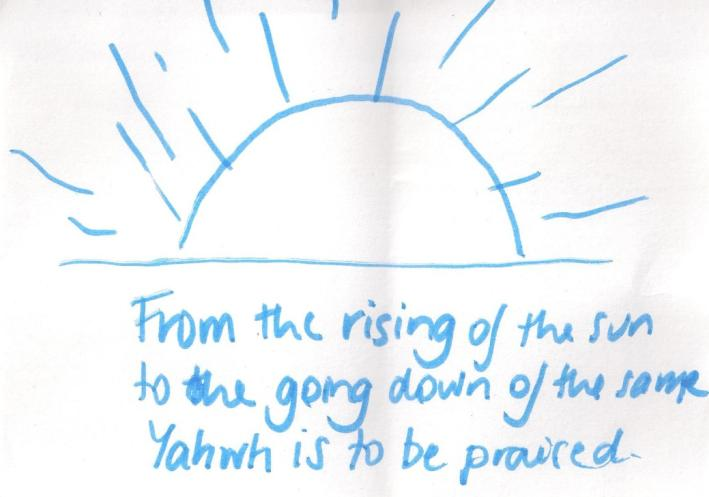 From the rising of the sun
to the going down of the same
Yahwh is to be praised.